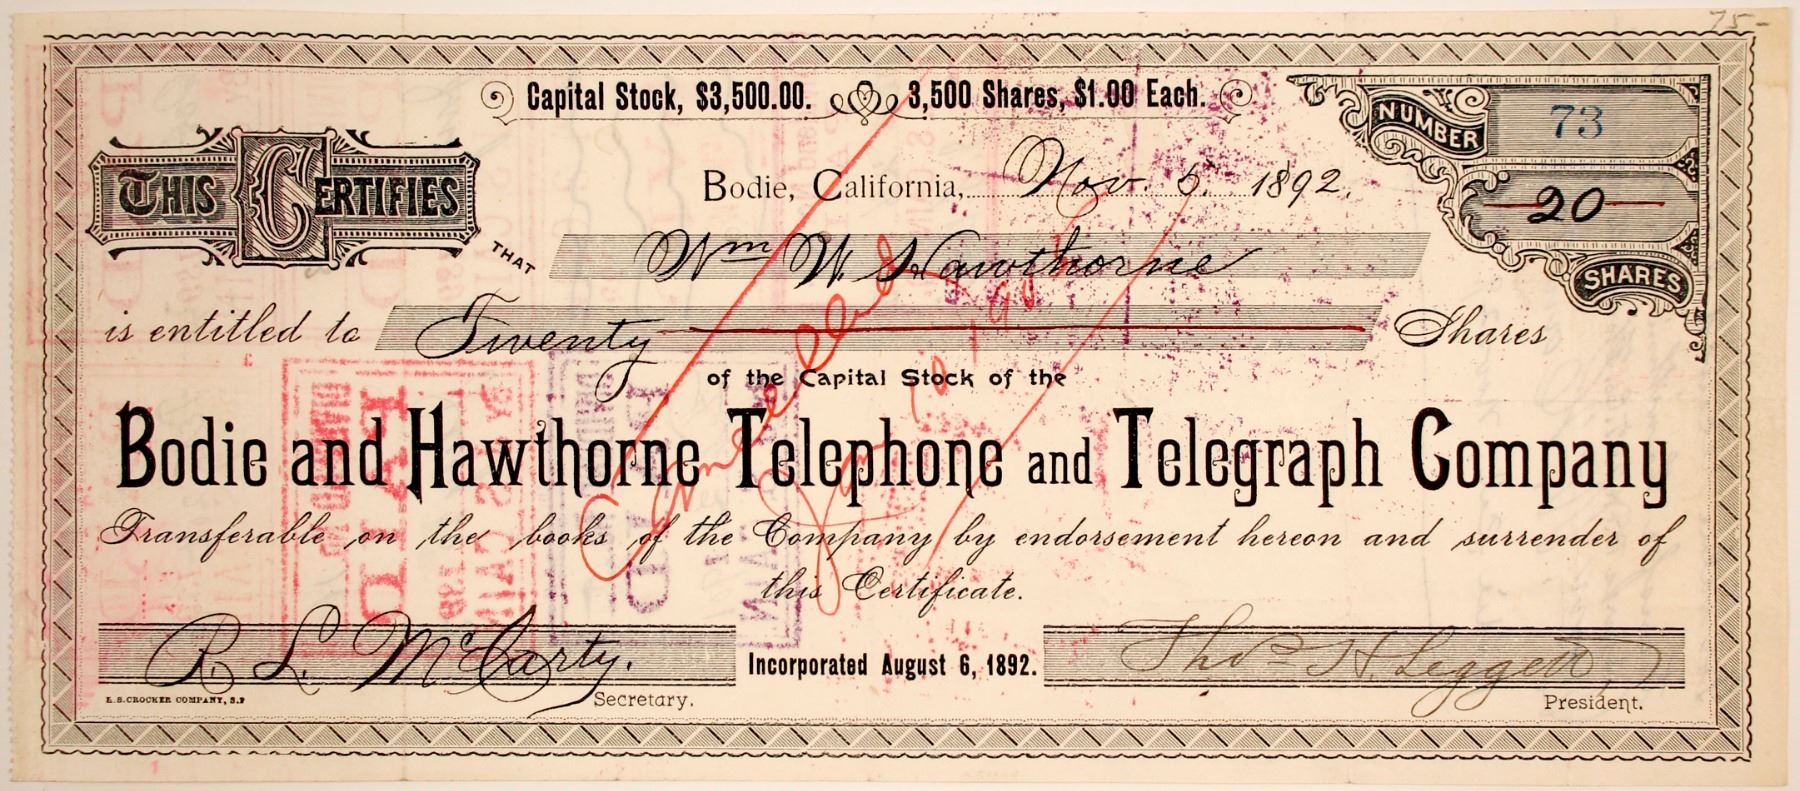 75-
Capital Stock, $3,500.00. 3,500 Shares, $1.00 Each.
NUMBER 73
THIS CERTIFIES
Bodie, California, Nov. 5. 1892.
20
SHARES
THAT Wm W. Hawthorne
is entitled to Twenty Shares
of the Capital Stock of the
Bodie and Hawthorne Telephone and Telegraph Company
Transferable on the books of the Company by endorsement hereon and surrender of
this Certificate.
Cancelled
Jan 10
R. L. McCarty.
Secretary.
Incorporated August 6, 1892.
Thos H. Leggett
President.
H.S. CROCKER COMPANY, S.F.